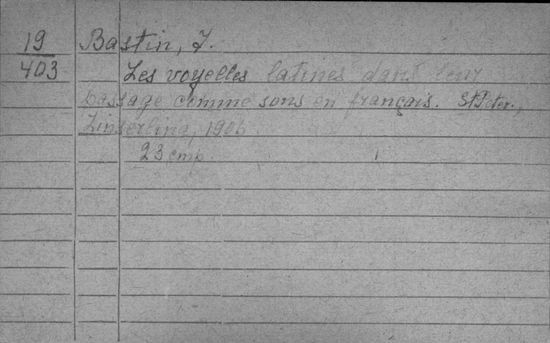 19 Bastin, J.
403 Les voyelles latines dans leur
passage comme sons en français. St Peter.,
Zinserling, 1906
23 cmp.